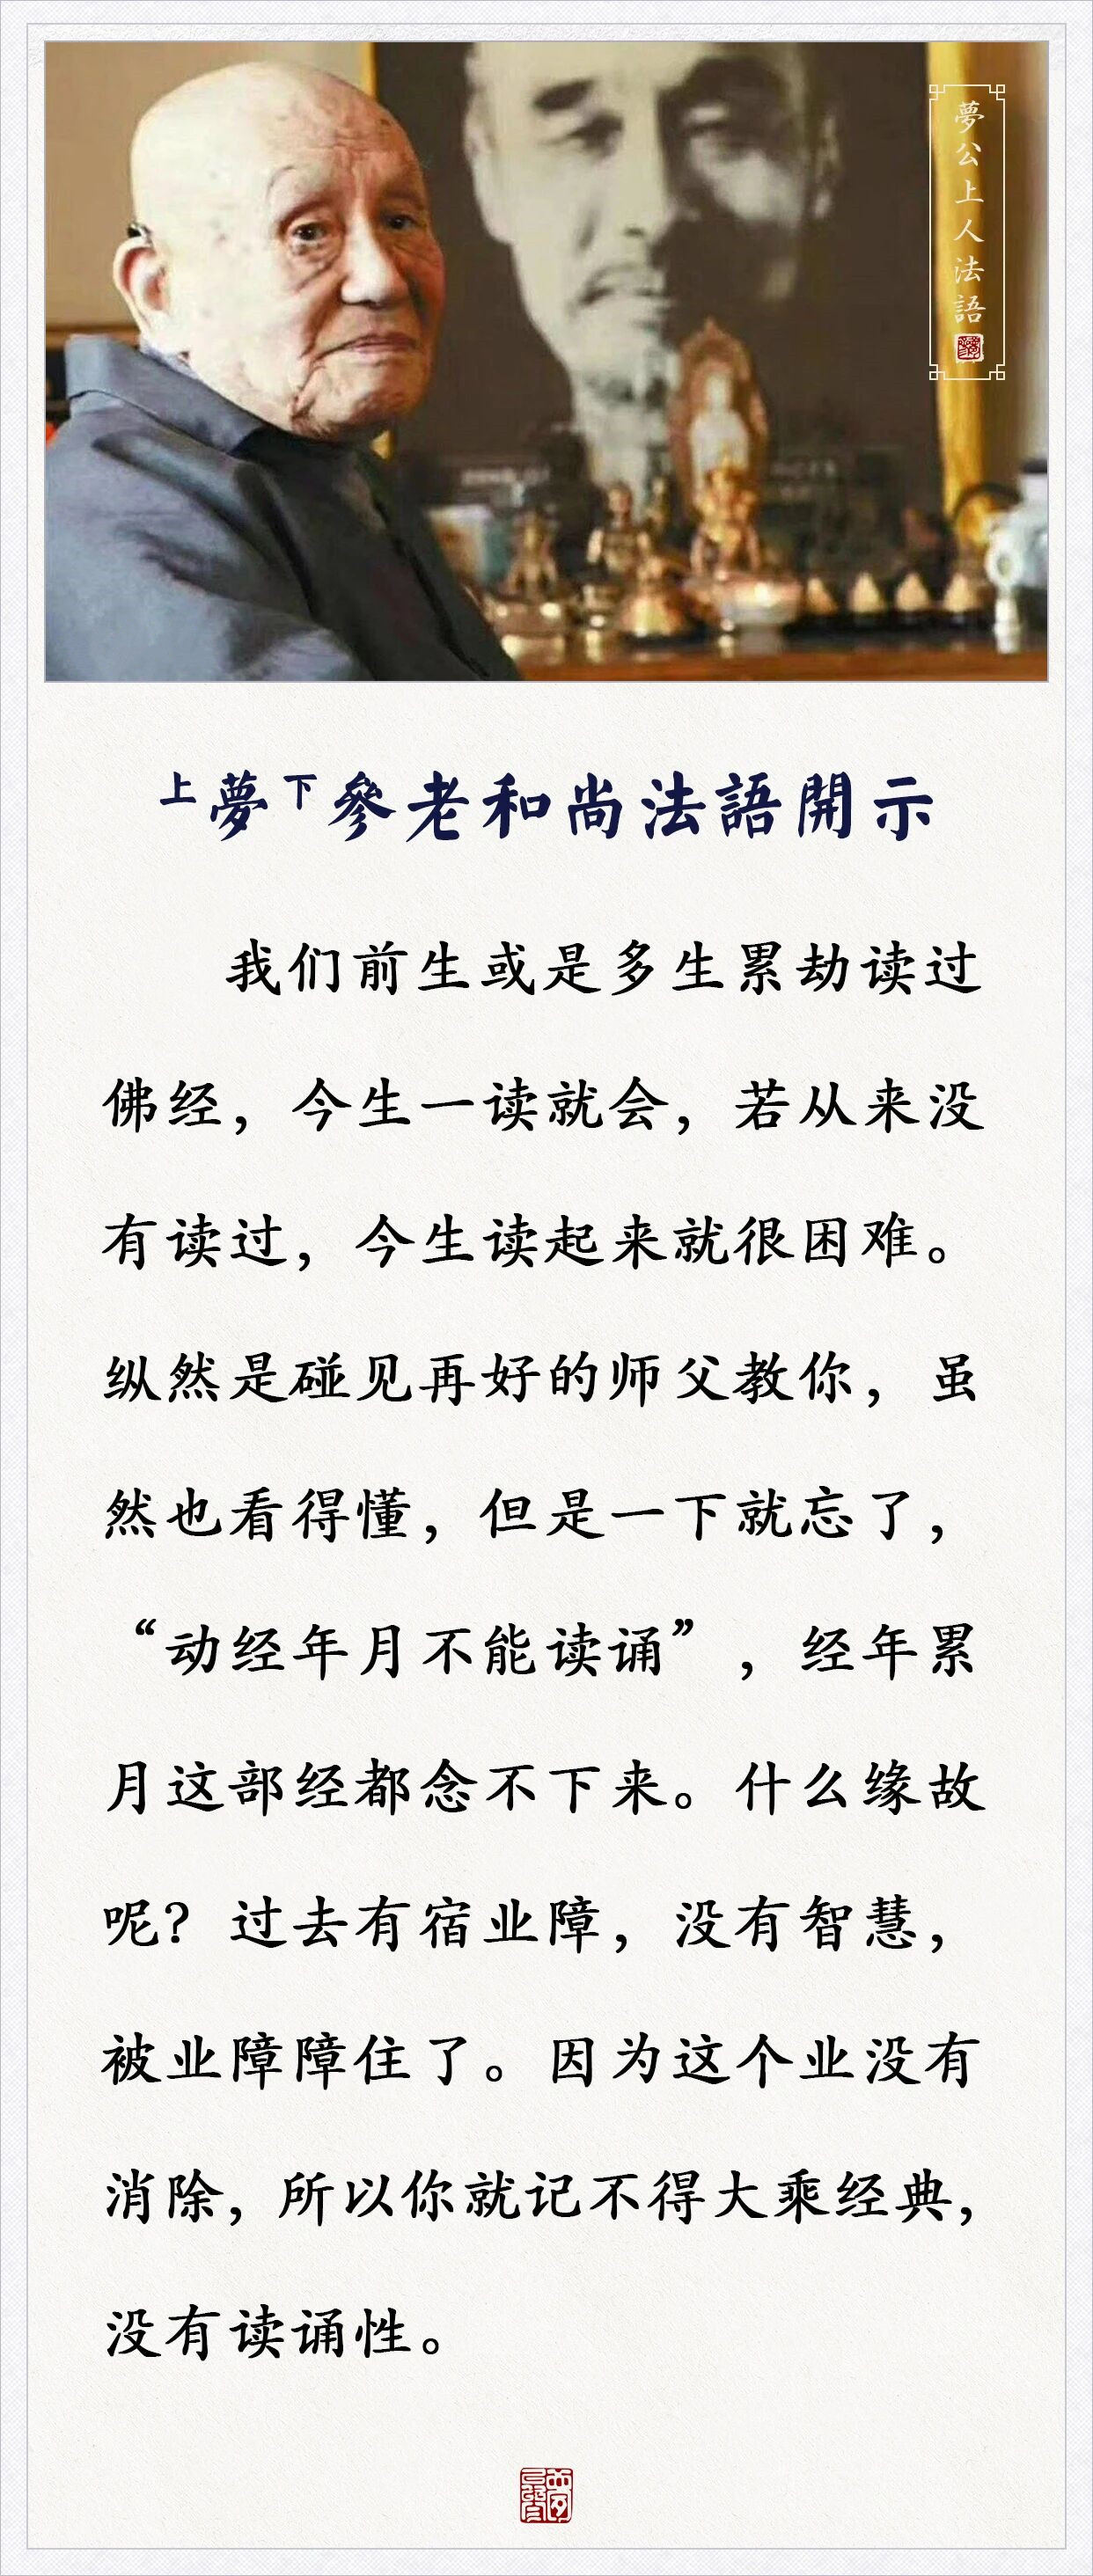 夢公上人法語
上夢下參老和尚法語開示
我们前生或是多生累劫读过
佛经，今生一读就会，若从来没
有读过，今生读起来就很困难。
纵然是碰见再好的师父教你，虽
然也看得懂，但是一下就忘了，
“动经年月不能读诵”，经年累
月这部经都念不下来。什么缘故
呢？过去有宿业障，没有智慧，
被业障障住了。因为这个业没有
消除，所以你就记不得大乘经典，
没有读诵性。